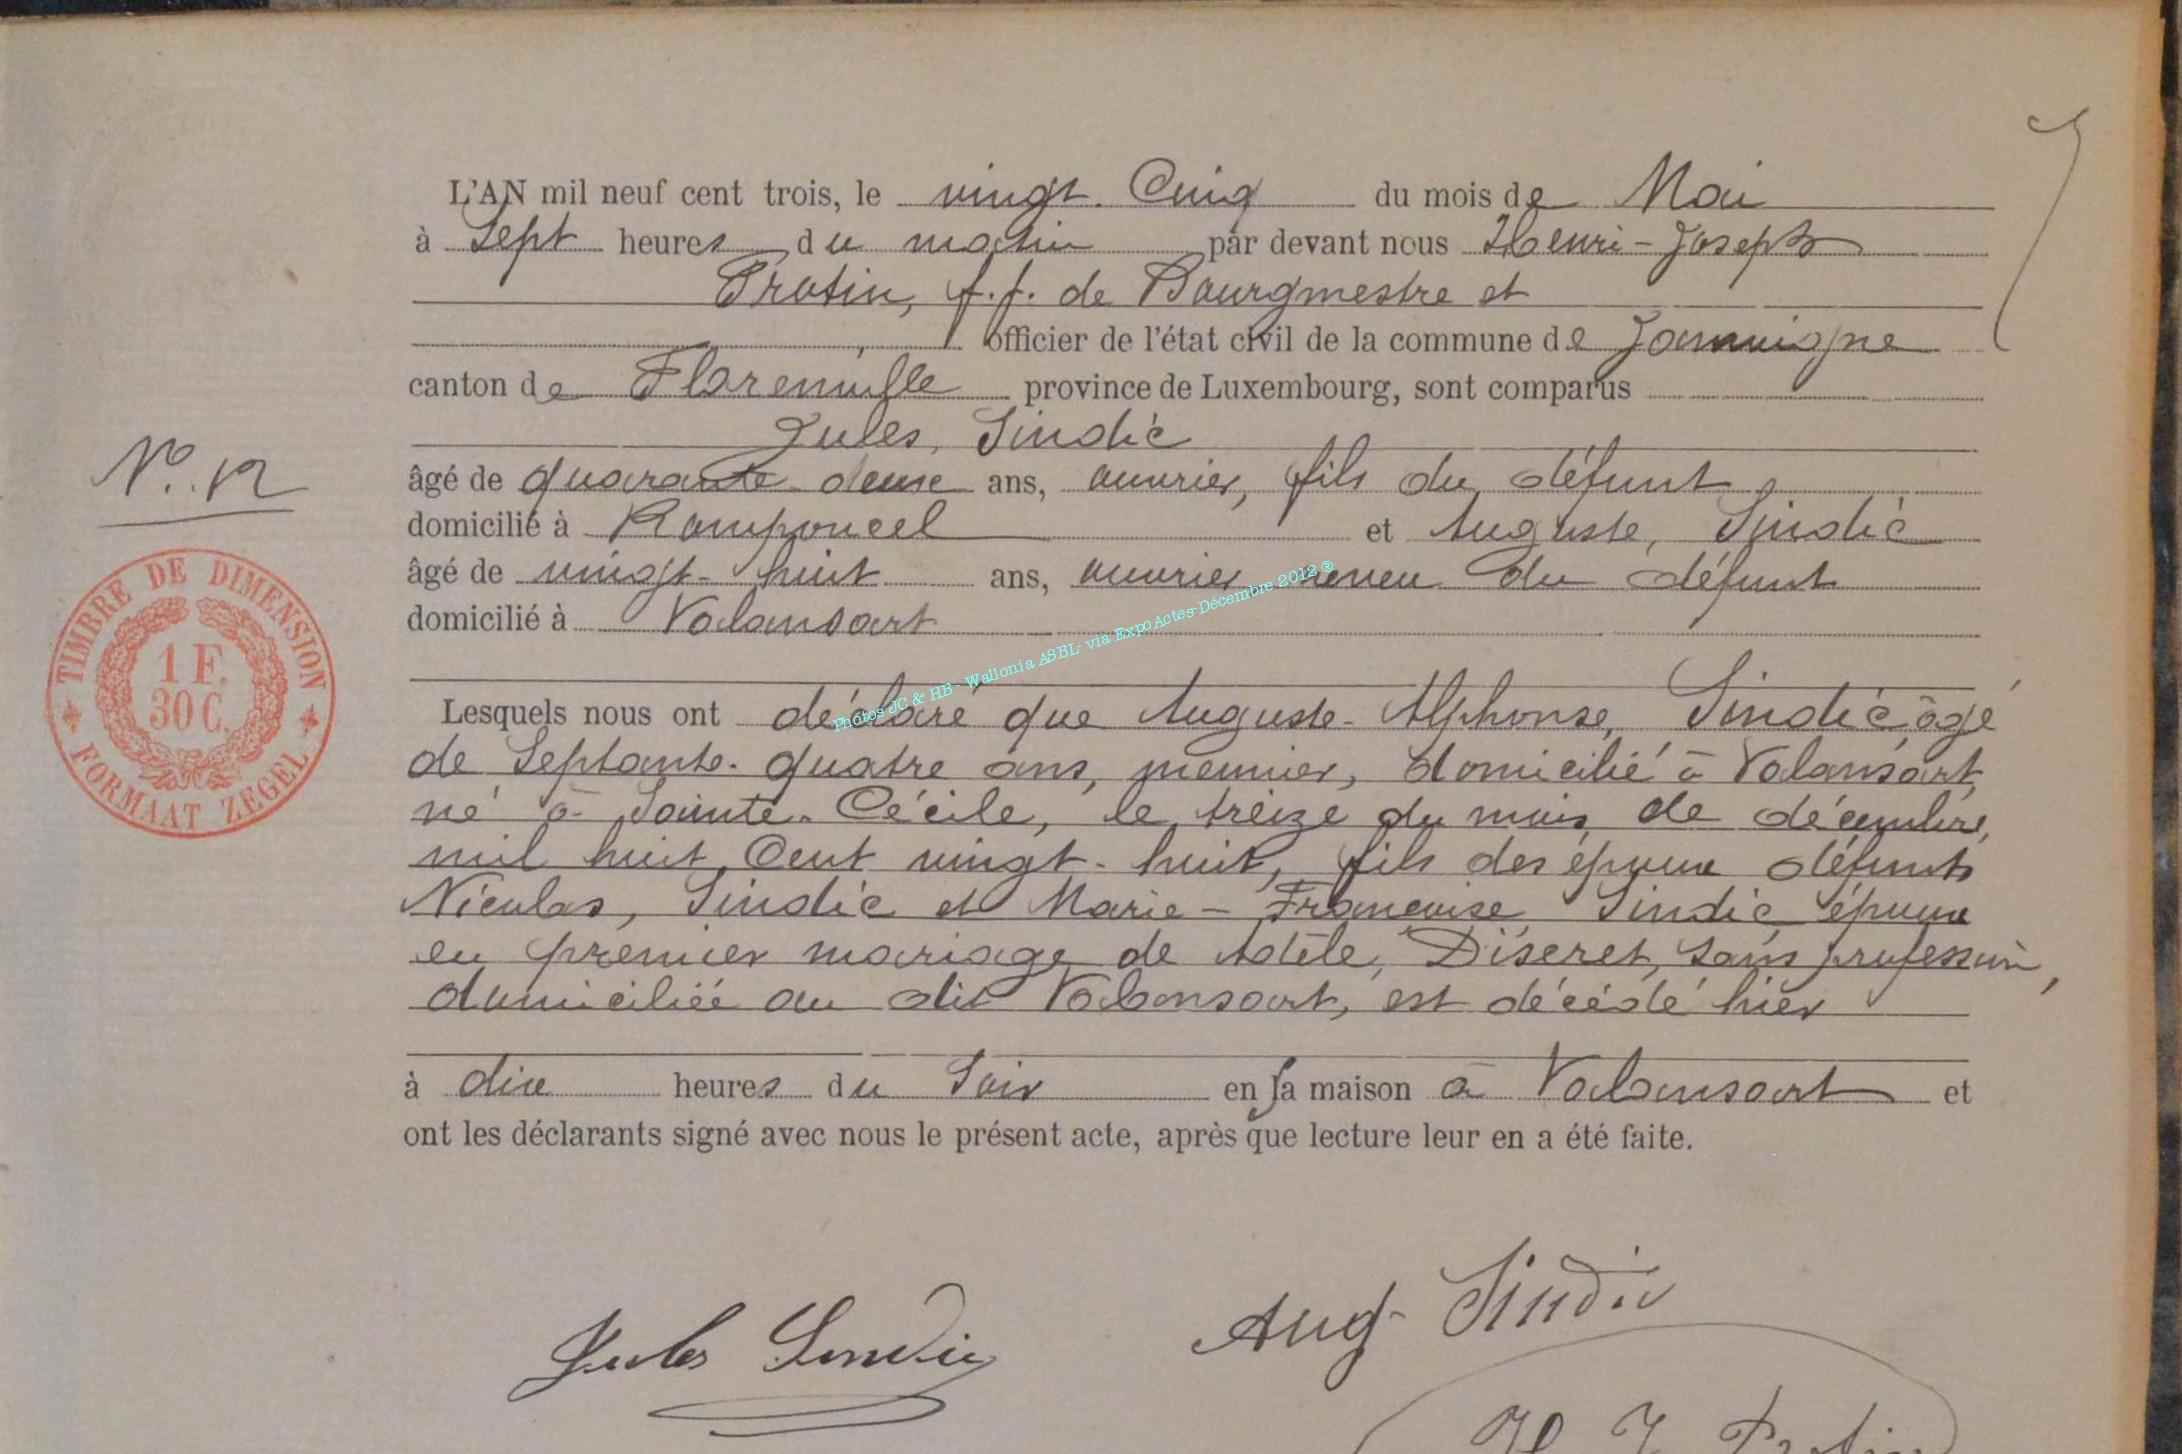 L'AN mil neuf cent trois, le vingt-Cinq du mois de Mai
à Sept heures du matin par devant nous Henri-Joseph
Protin, f.f. de Bourgmestre et
officier de l'état civil de la commune de Jamoigne
canton de Florenville province de Luxembourg, sont comparus
Jules, Sindic
âgé de quarante-deux ans, ouvrier, fils du défunt
domicilié à Ramponcel et Auguste, Sindic
âgé de vingt-huit ans, ouvrier neveu du défunt
domicilié à Valansart
Lesquels nous ont déclaré que Auguste-Alphonse, Sindic âgé
de Septante-quatre ans, meunier, domicilié à Valansart,
né à Sainte-Cécile, le treize du mois de décembre,
mil huit Cent vingt-huit, fils des époux défunts
Nicolas, Sindic et Marie-Françoise Sindic, époux
en premier mariage de Adèle, Diseret, sans profession,
domiciliée au dit Valansart, est décédé hier
à dix heures du Soir en sa maison à Valansart et
ont les déclarants signé avec nous le présent acte, après que lecture leur en a été faite.
No. 12
TIMBRE DE DIMENSION
1 F.
30 C.
FORMAAT ZEGEL
Photos JC & HB - Wallonia ASBL via ExpoActes-Décembre 2012 ®
Jules Sindic
Aug. Sindic
H. J. Protin